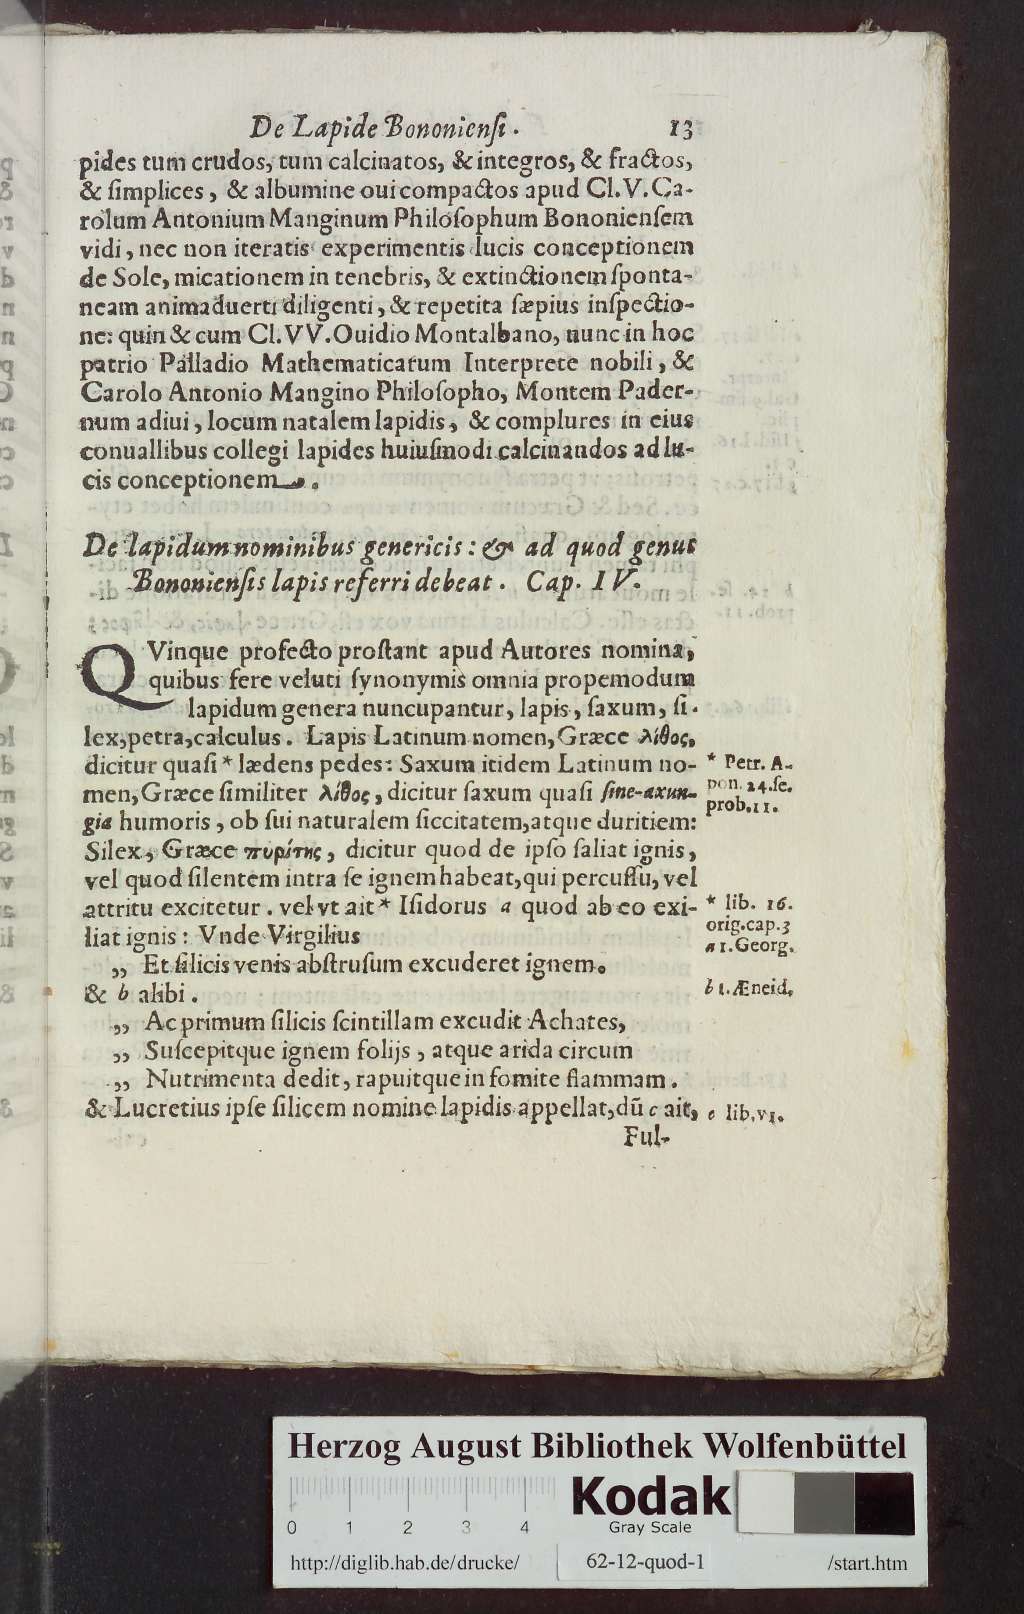 De Lapide Bononienſi. 13
pides tum crudos, tum calcinatos, & integros, & fractos,
& ſimplices, & albumine oui compactos apud Cl. V. Ca-
rolum Antonium Manginum Philoſophum Bononienſem
vidi, nec non iteratis experimentis lucis conceptionem
de Sole, micationem in tenebris, & extinctionem ſponta-
neam animaduerti diligenti, & repetita ſæpius inſpectio-
ne: quin & cum Cl. VV. Ouidio Montalbano, nunc in hoc
patrio Palladio Mathematicarum Interprete nobili, &
Carolo Antonio Mangino Philoſopho, Montem Pader-
num adiui, locum natalem lapidis, & complures in eius
conuallibus collegi lapides huiuſmodi calcinandos ad lu-
cis conceptionem.
De lapidum nominibus genericis: & ad quod genus
Bononienſis lapis referri debeat. Cap. IV.
QVinque profecto proſtant apud Autores nomina,
quibus fere veluti ſynonymis omnia propemodum
lapidum genera nuncupantur, lapis, ſaxum, ſi-
lex, petra, calculus. Lapis Latinum nomen, Græce λίθος,
dicitur quaſi * lædens pedes: Saxum itidem Latinum no-
* Petr. A-
men, Græce ſimiliter λίθος, dicitur ſaxum quaſi ſine-axun-
pon. 24. ſe.
prob. 11.
gia humoris, ob ſui naturalem ſiccitatem, atque duritiem:
Silex, Græce πυρίτης, dicitur quod de ipſo ſaliat ignis,
vel quod ſilentem intra ſe ignem habeat, qui percuſſu, vel
attritu excitetur. vel vt ait * Iſidorus a quod ab eo exi-
* lib. 16.
orig. cap. 3
liat ignis: Vnde Virgilius
a 1. Georg.
„ Et ſilicis venis abſtruſum excuderet ignem.
& b alibi.
b 1. Æneid.
„ Ac primum ſilicis ſcintillam excudit Achates,
„ Suſcepitque ignem folijs, atque arida circum
„ Nutrimenta dedit, rapuitque in fomite flammam.
& Lucretius ipſe ſilicem nomine lapidis appellat, dū c ait,
c lib. vi.
Ful-
Herzog August Bibliothek Wolfenbüttel
0 1 2 3 4
Kodak
Gray Scale
http://diglib.hab.de/drucke/ 62-12-quod-1 /start.htm